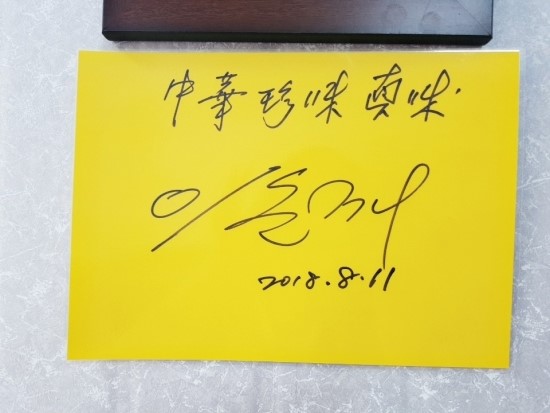 中華 珍味 真味.
2018.8.11